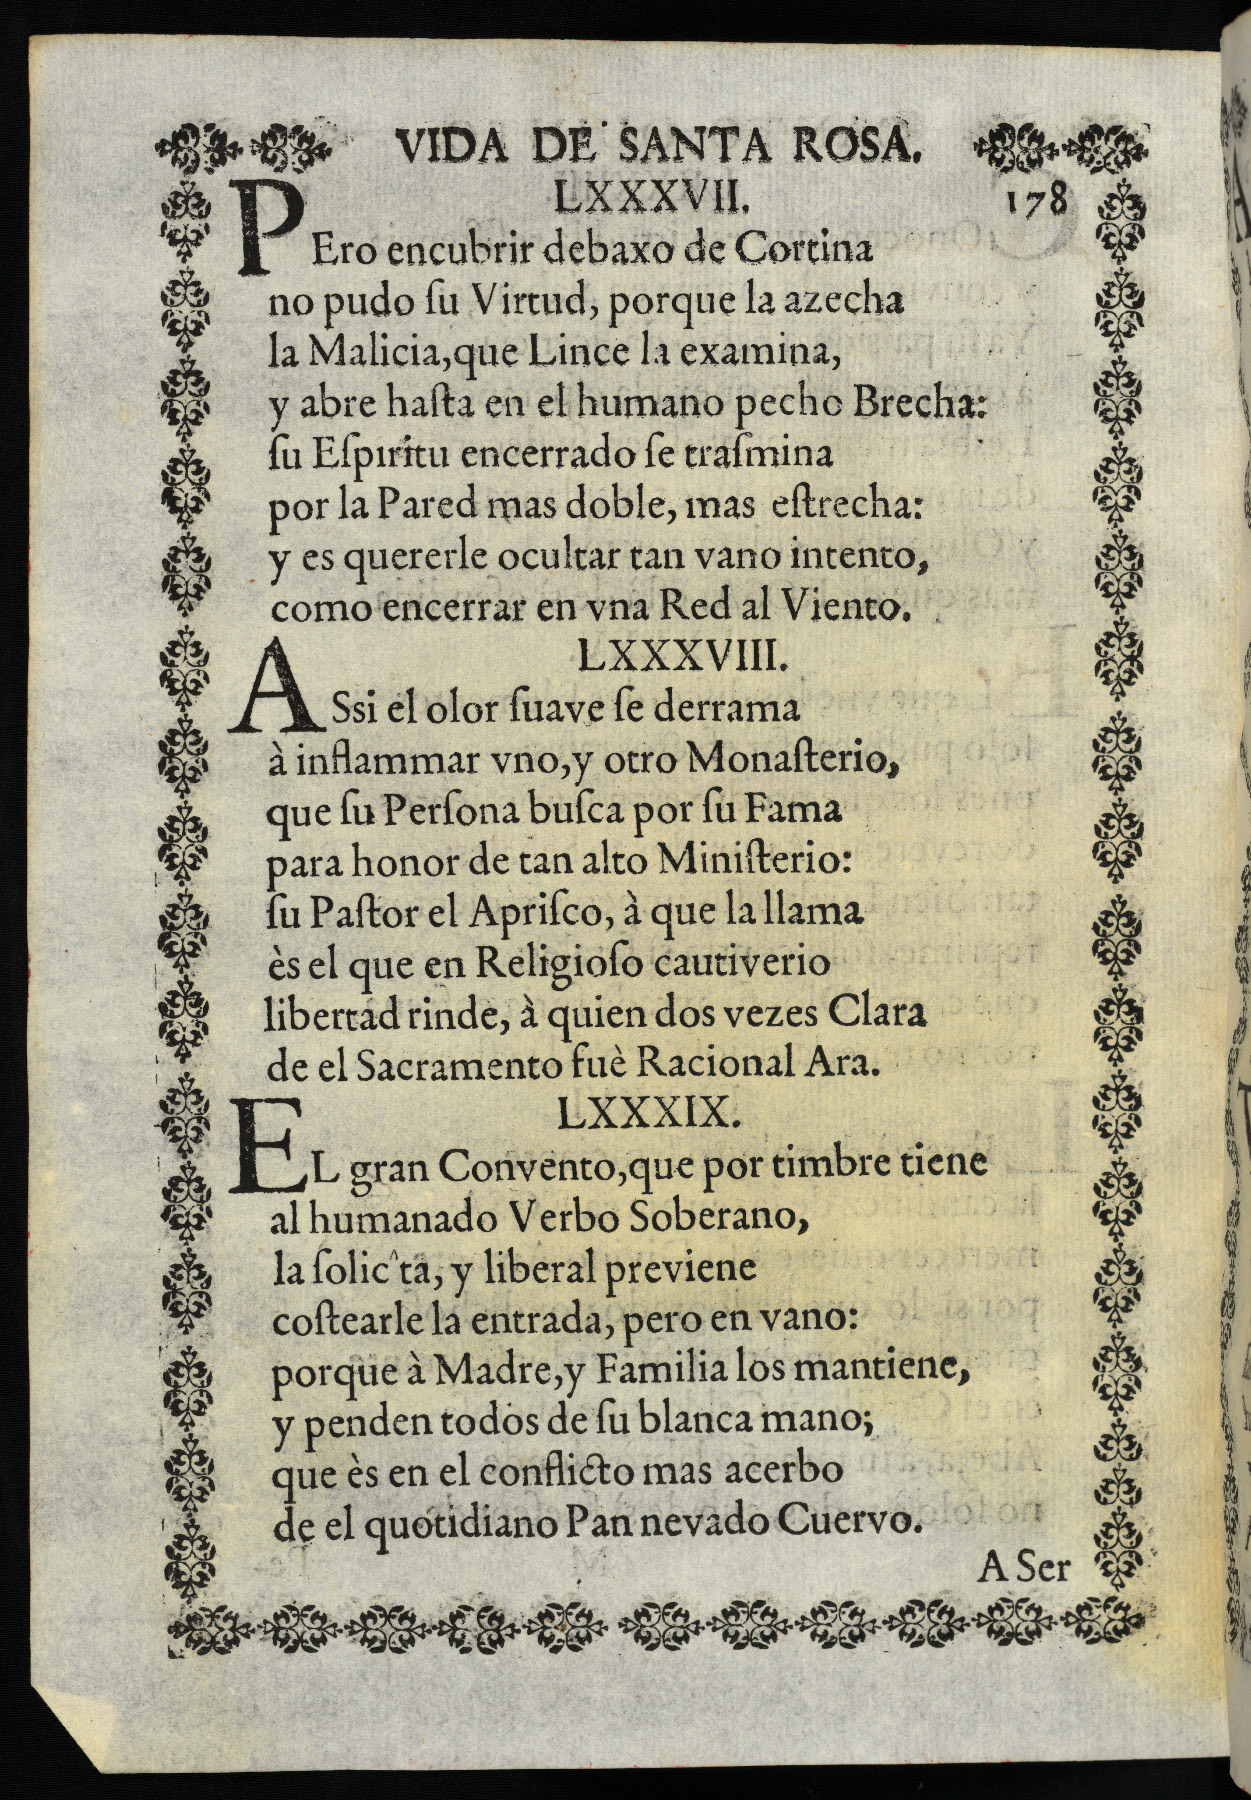 VIDA DE SANTA ROSA.
LXXXVII. 178
PEro encubrir debaxo de Cortina
no pudo ſu Virtud, porque la azecha
la Malicia,que Lince la examina,
y abre haſta en el humano pecho Brecha:
ſu Eſpiritu encerrado ſe traſmina
por la Pared mas doble, mas eſtrecha:
y es quererle ocultar tan vano intento,
como encerrar en vna Red al Viento.
LXXXVIII.
ASsi el olor ſuave ſe derrama
à inflammar vno,y otro Monaſterio,
que ſu Perſona buſca por ſu Fama
para honor de tan alto Miniſterio:
ſu Paſtor el Apriſco, à que la llama
ès el que en Religioſo cautiverio
libertad rinde, à quien dos vezes Clara
de el Sacramento fuè Racional Ara.
LXXXIX.
EL gran Convento,que por timbre tiene
al humanado Verbo Soberano,
la ſolic^ta, y liberal previene
coſtearle la entrada, pero en vano:
porque à Madre,y Familia los mantiene,
y penden todos de ſu blanca mano;
que ès en el conflicto mas acerbo
de el quotidiano Pan nevado Cuervo.
A Ser